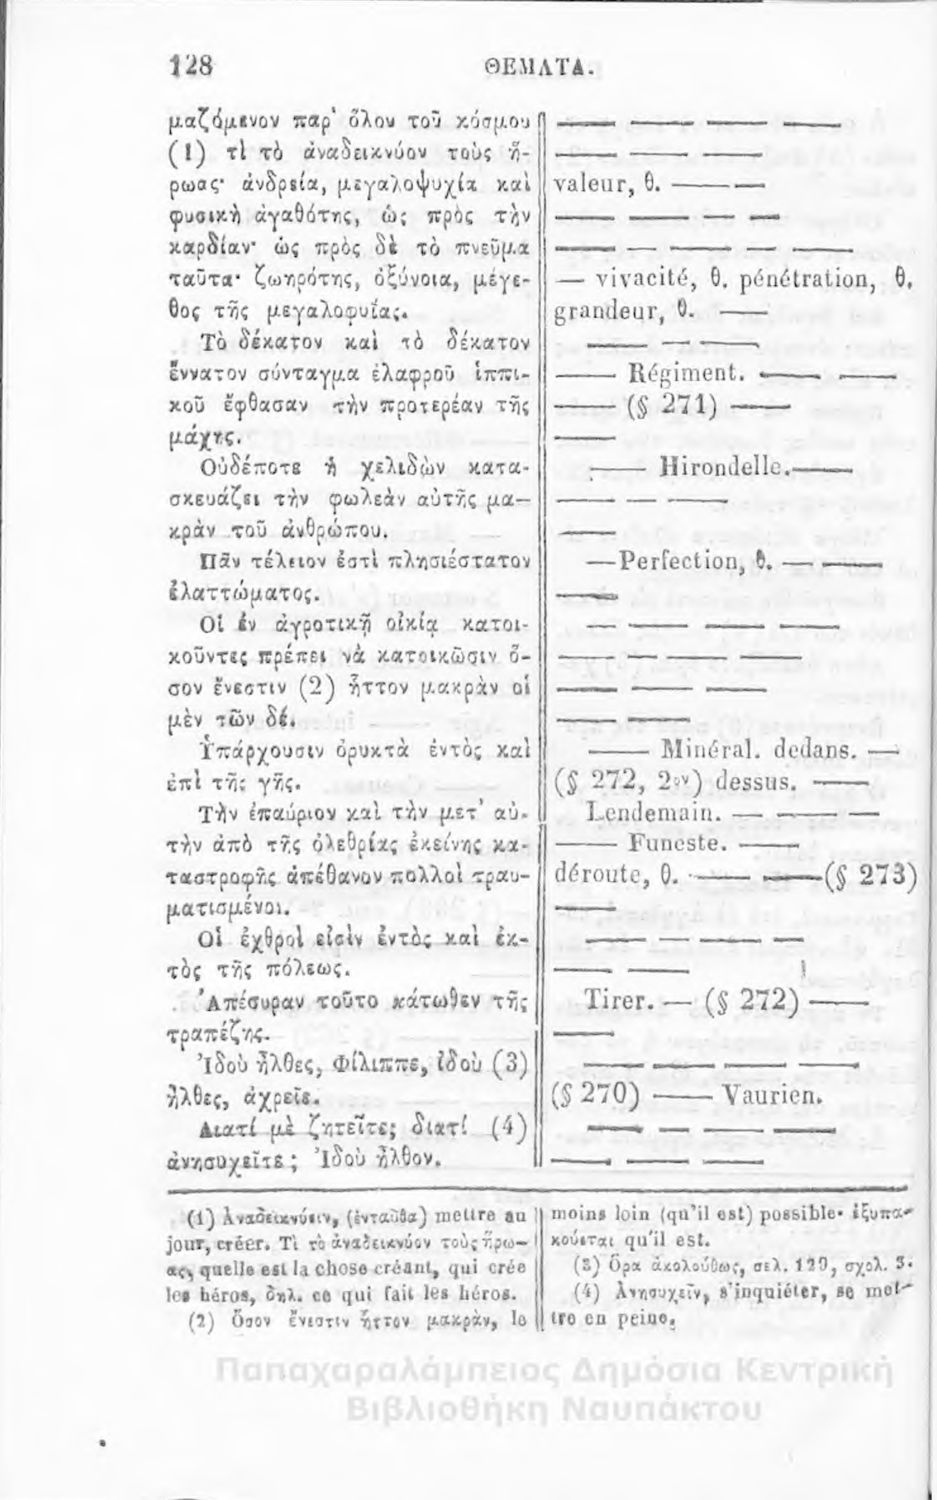 128 ΘΕΜΑΤΑ.
μαζόμενον παρ' ὅλου τοῦ κόσμου
(1) τί τὸ ἀναδεικνύον τοὺς ἥ-
ρωας· ἀνδρεία, μεγαλοψυχία καὶ
φυσικὴ ἀγαθότης, ὡς πρὸς τὴν
καρδίαν· ὡς πρὸς δὲ τὸ πνεῦμα
ταῦτα· ζωηρότης, ὀξύνοια, μέγε-
θος τῆς μεγαλοφυΐας.
Τὸ δέκατον καὶ τὸ δέκατον
ἔννατον σύνταγμα ἐλαφροῦ ἱππι-
κοῦ ἔφθασαν τὴν προτεραίαν τῆς
μάχης.
Οὐδέποτε ἡ χελιδὼν κατα-
σκευάζει τὴν φωλεὰν αὐτῆς μα-
κρὰν τοῦ ἀνθρώπου.
Πᾶν τέλειον ἐστὶ πλησιέστατον
ἐλαττώματος.
Οἱ ἐν ἀγροτικῇ οἰκίᾳ κατοι-
κοῦντες πρέπει νὰ κατοικῶσιν ὅ-
σον ἔνεστιν (2) ἧττον μακρὰν οἱ
μὲν τῶν δέ.
Ὑπάρχουσιν ὀρυκτὰ ἐντὸς καὶ
ἐπὶ τῆς γῆς.
Τὴν ἐπαύριον καὶ τὴν μετ' αὐ-
τὴν ἀπὸ τῆς ὀλεθρίας ἐκείνης κα-
ταστροφῆς ἀπέθανον πολλοὶ τραυ-
ματισμένοι.
Οἱ ἐχθροὶ εἰσὶν ἐντὸς καὶ ἐκ-
τὸς τῆς πόλεως.
Ἀπέσυραν τοῦτο κάτωθεν τῆς
τραπέζης.
Ἰδοὺ ἦλθες, Φίλιππε, ἰδοὺ (3)
ἦλθες, ἀχρεῖε.
Διατί μὲ ζητεῖτε; διατί (4)
ἀνησυχεῖτε; Ἰδοὺ ἦλθον.
valeur, θ. ——
— vivacité, θ. pénétration, θ.
grandeur, θ. ——
—— Régiment. —— ——
—— (§ 271) ——
—— Hirondelle. ——
— Perfection, θ. — ——
—— Minéral. dedans. —
(§ 272, 2ον) dessus. ——
Lendemain. — —— —
—— Funeste. ——
déroute, θ. —— —— (§ 273)
Tirer. — (§ 272) ——
(§ 270) —— Vaurien.
(1) Ἀναδεικνύειν, (ἐνταῦθα) mettre au
jour, créer. Τί τὸ ἀναδεικνύον τοὺς ἥρω-
ας, quelle est la chose créant, qui crée
les héros, δηλ. ce qui fait les héros.
(2) Ὅσον ἔνεστιν ἧττον μακρὰν, le
moins loin (qu'il est) possible· ἐξυπα-
κούεται qu'il est.
(3) Ὅρα ἀκολούθως, σελ. 129, σχολ. 3.
(4) Ἀνησυχεῖν, s'inquiéter, se met-
tre en peine.
Παπαχαραλάμπειος Δημόσια Κεντρική
Βιβλιοθήκη Ναυπάκτου